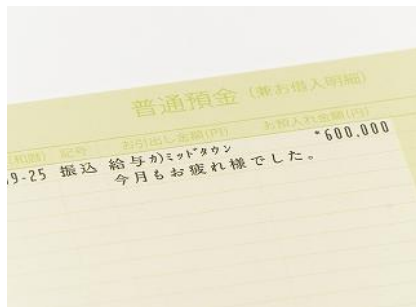 普通預金 (兼お借入明細)
(和暦) 記号 お引出し金額(円) お預入れ金額(円)
9-25 振込 給与 カ)ミッドタウン *600,000
今月もお疲れ様でした。